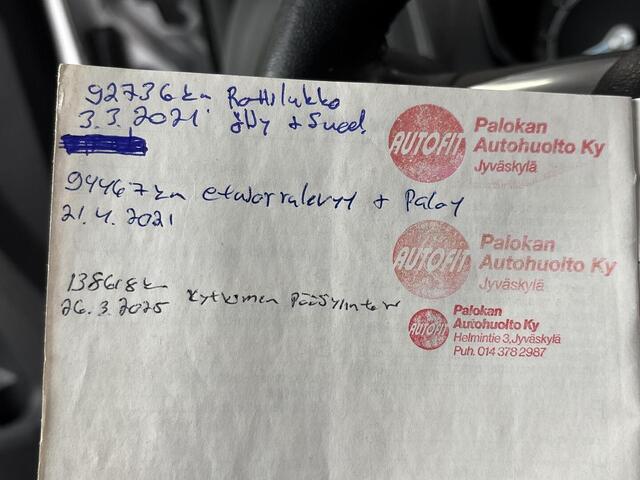 92736 km Rattilukko
3.3.2021. öljy + Suod.
AUTOFIT
Palokan
Autohuolto Ky
Jyväskylä
94467 km etujarrulevyt + Palat
21.4.2021
AUTOFIT
Palokan
Autohuolto Ky
Jyväskylä
138618 km
26.3.2025 kytkimen Pääsylinteri
AUTOFIT
Palokan
Autohuolto Ky
Helmintie 3, Jyväskylä
Puh. 014 378 2987